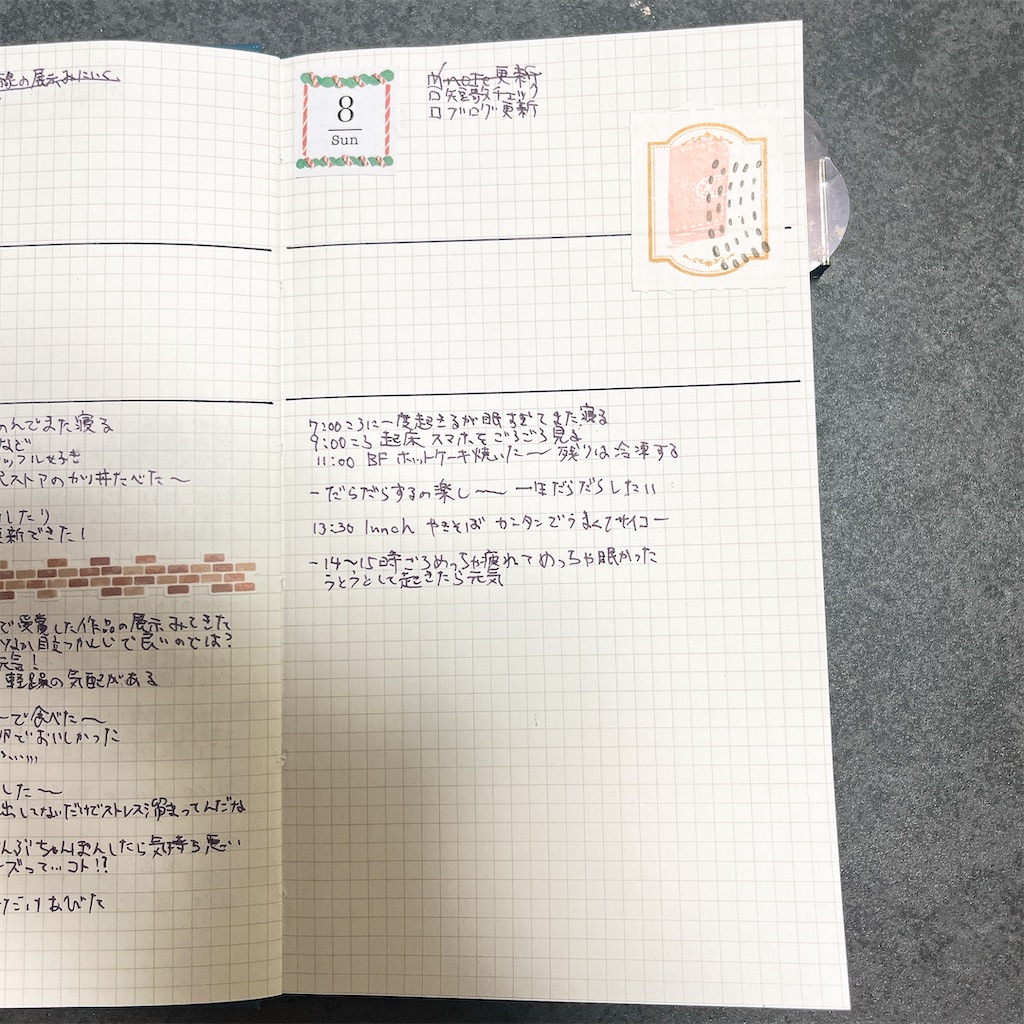 の展示みにいく
8
Sun
note更新
短歌チェック
ブログ更新
んでまた寝る
など
ップル好き
ストアのカツ丼たべた〜
したり
更新できた!
で受賞した作品の展示みてきた
目立つかんじで良いのでは?
元気!
軽躁の気配がある
ーで食べた〜
でおいしかった
した〜
出してないだけでストレス溜まってんだな
ちゃんぽんしたら気持ち悪い
ーズって…コト!?
だけあびた
7:00ころに一度起きるが眠すぎてまた寝る
9:00ころ 起床 スマホをごろごろ見る
11:00 BF ホットケーキ焼いた〜 残りは冷凍する
-だらだらするの楽し〜〜 一生だらだらしたい
13:30 lunch やきそば カンタンでうまくてサイコー
-14〜15時ごろめっちゃ疲れてめっちゃ眠かった
うとうとして起きたら元気